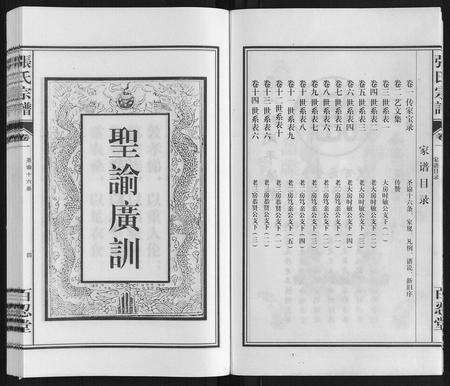 張氏宗譜
卷
家谱目录
百忍堂
家谱目录
卷一 传家宝录 圣谕十六条、家规、凡例、谱说、新旧序
艺文集 传赞
卷三 世系表一 老大房时敏公支下（一）
卷四 世系表二 老大房时敏公支下（二）
卷五 世系表三 老大房时敏公支下（三）
卷六 世系表四 老大房时敏公支下（四）
卷七 世系表五 老二房笃亲公支下（一）
卷八 世系表六 老二房笃亲公支下（二）
卷九 世系表七 老二房笃亲公支下（三）
卷十 世系表八 老二房笃亲公支下（四）
卷十一 世系表九 老二房笃亲公支下（五）
卷十二 世系表十 公支下（一）
卷十三 世系表 公支下（二）
卷十四 世系表 公支下（三）
聖諭廣訓
張氏宗譜
卷
圣谕十六条
四
百忍堂